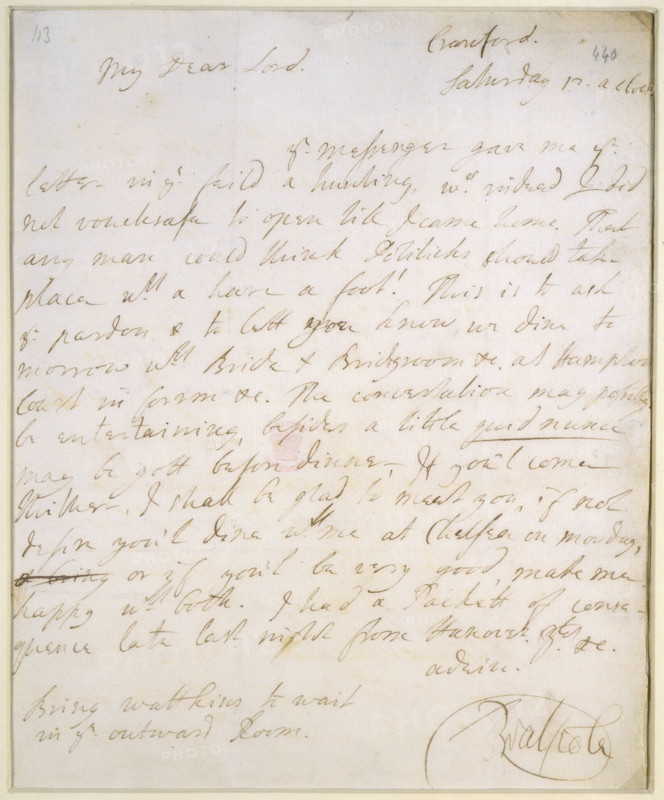 113
440
Cranford.
My Dear Lord.
Saturday 12. a clock
yr. messenger gave me yr.
letter in ye. feild a hunting, wch. indeed I did
not vouchsafe to open till I came home. That
any man could think Politicks should take
place wth a hare a foot! This is to ask
yr. pardon & to lett you know, we dine to
morrow wth Bride & Bridegroom &c. at Hampton
Court in form &c. The conversation may possibly
be entertaining, besides a little quid nunc
may be gott before dinner, If you'l come
thither, I shall be glad to meet you, if not
desire you'l dine wth me at Chelsea on monday,
& bring or if you'l be very good, make me
happy wth both. I had a Packett of conse-
quence late last night from Hanover. yrs. &c.
adieu.
RWalpole
Bring wattkins to wait
in yr. outward Room.